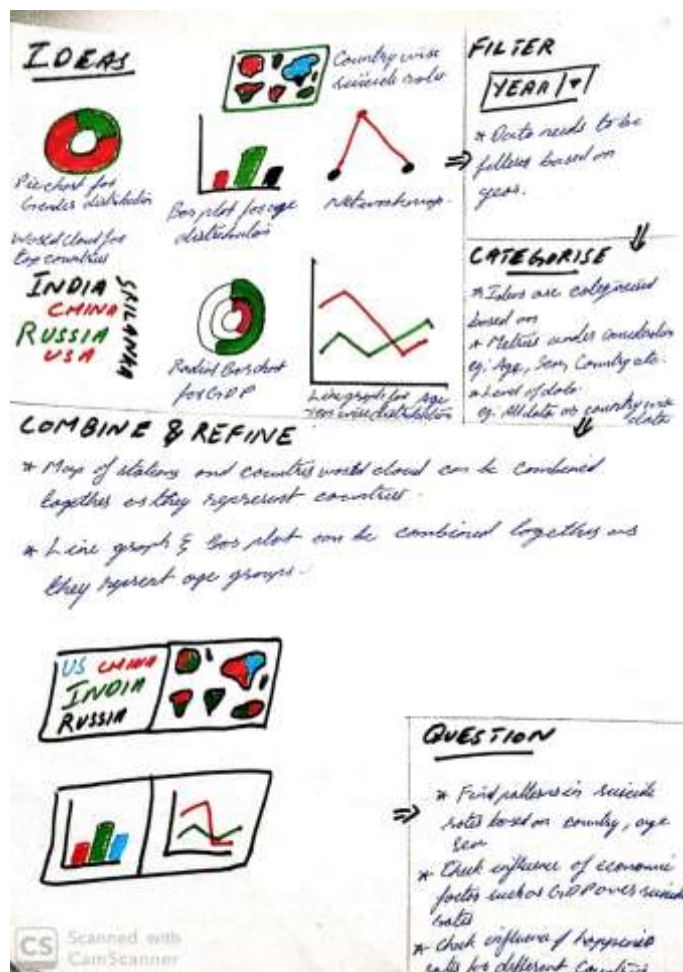 IDEAS
Country wise
suicide rates
Pie chart for
Gender distribution
Bar plot for age
distribution
Network map.
World Cloud for
top countries
INDIA
CHINA
RUSSIA
USA
SRILANKA
Radial Bar chart
for GDP
Line graph for Age
sex wise distribution
FILTER
YEAR
* Data needs to be
filters based on
year.
CATEGORISE
* Ideas are categorised
based on
* Metrics under consideration
eg. Age, Sex, Country etc.
* Level of data.
eg. All data or country wise
data
COMBINE & REFINE
* Map of and countries world cloud can be combined
together as they represent countries.
* Line graph & Bar plot can be combined together as
they represent age groups.
US CHINA
INDIA
RUSSIA
QUESTION
* Find patterns in suicide
rates based on country, age
sex
* Check influence of economic
factor such as GDP over suicide
rates
* Check influence of happiness
rates for different Countries
CS Scanned with
CamScanner